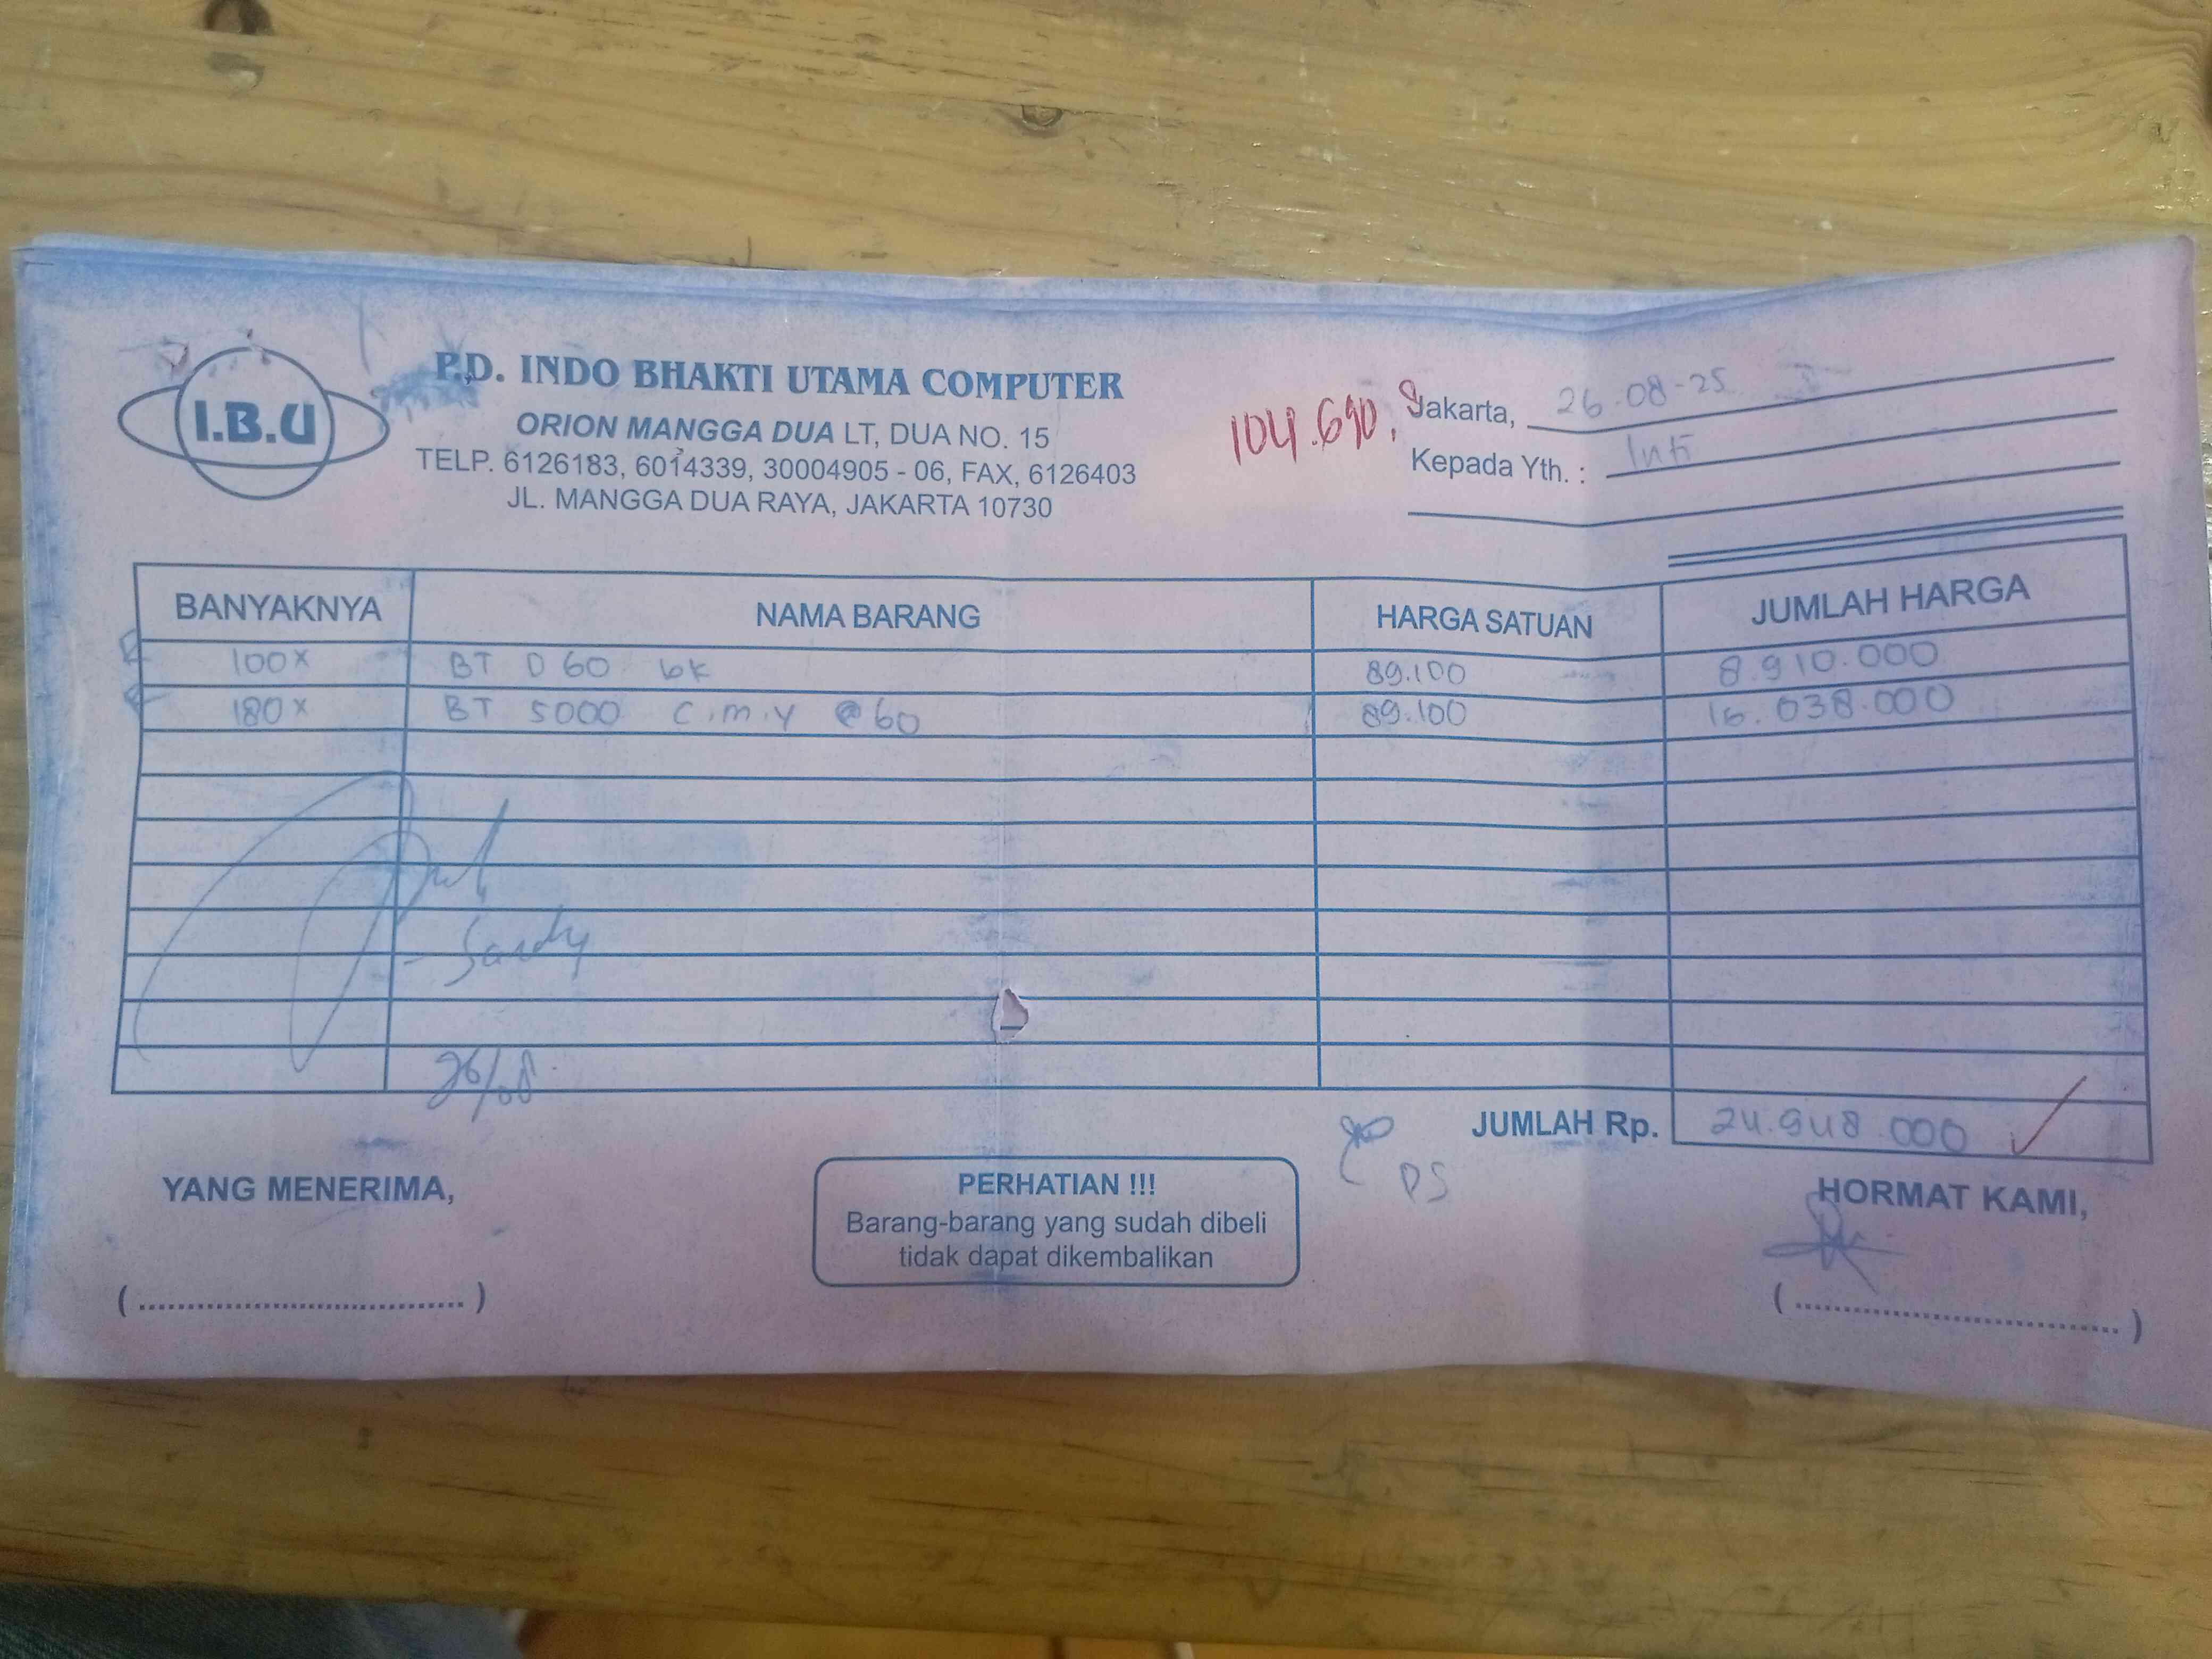 I.B.U
P.D. INDO BHAKTI UTAMA COMPUTER
ORION MANGGA DUA LT, DUA NO. 15
TELP. 6126183, 6014339, 30004905 - 06, FAX, 6126403
JL. MANGGA DUA RAYA, JAKARTA 10730
104.690,
Jakarta, 26-08-25
Kepada Yth. : Inti
BANYAKNYA NAMA BARANG HARGA SATUAN JUMLAH HARGA
100x BT D60 bk 89.100 8.910.000
180x BT 5000 C.m.y @60 89.100 16.038.000
Sandy
26/08
JUMLAH Rp. 24.948.000
DS
YANG MENERIMA,
PERHATIAN !!!
Barang-barang yang sudah dibeli
tidak dapat dikembalikan
HORMAT KAMI,